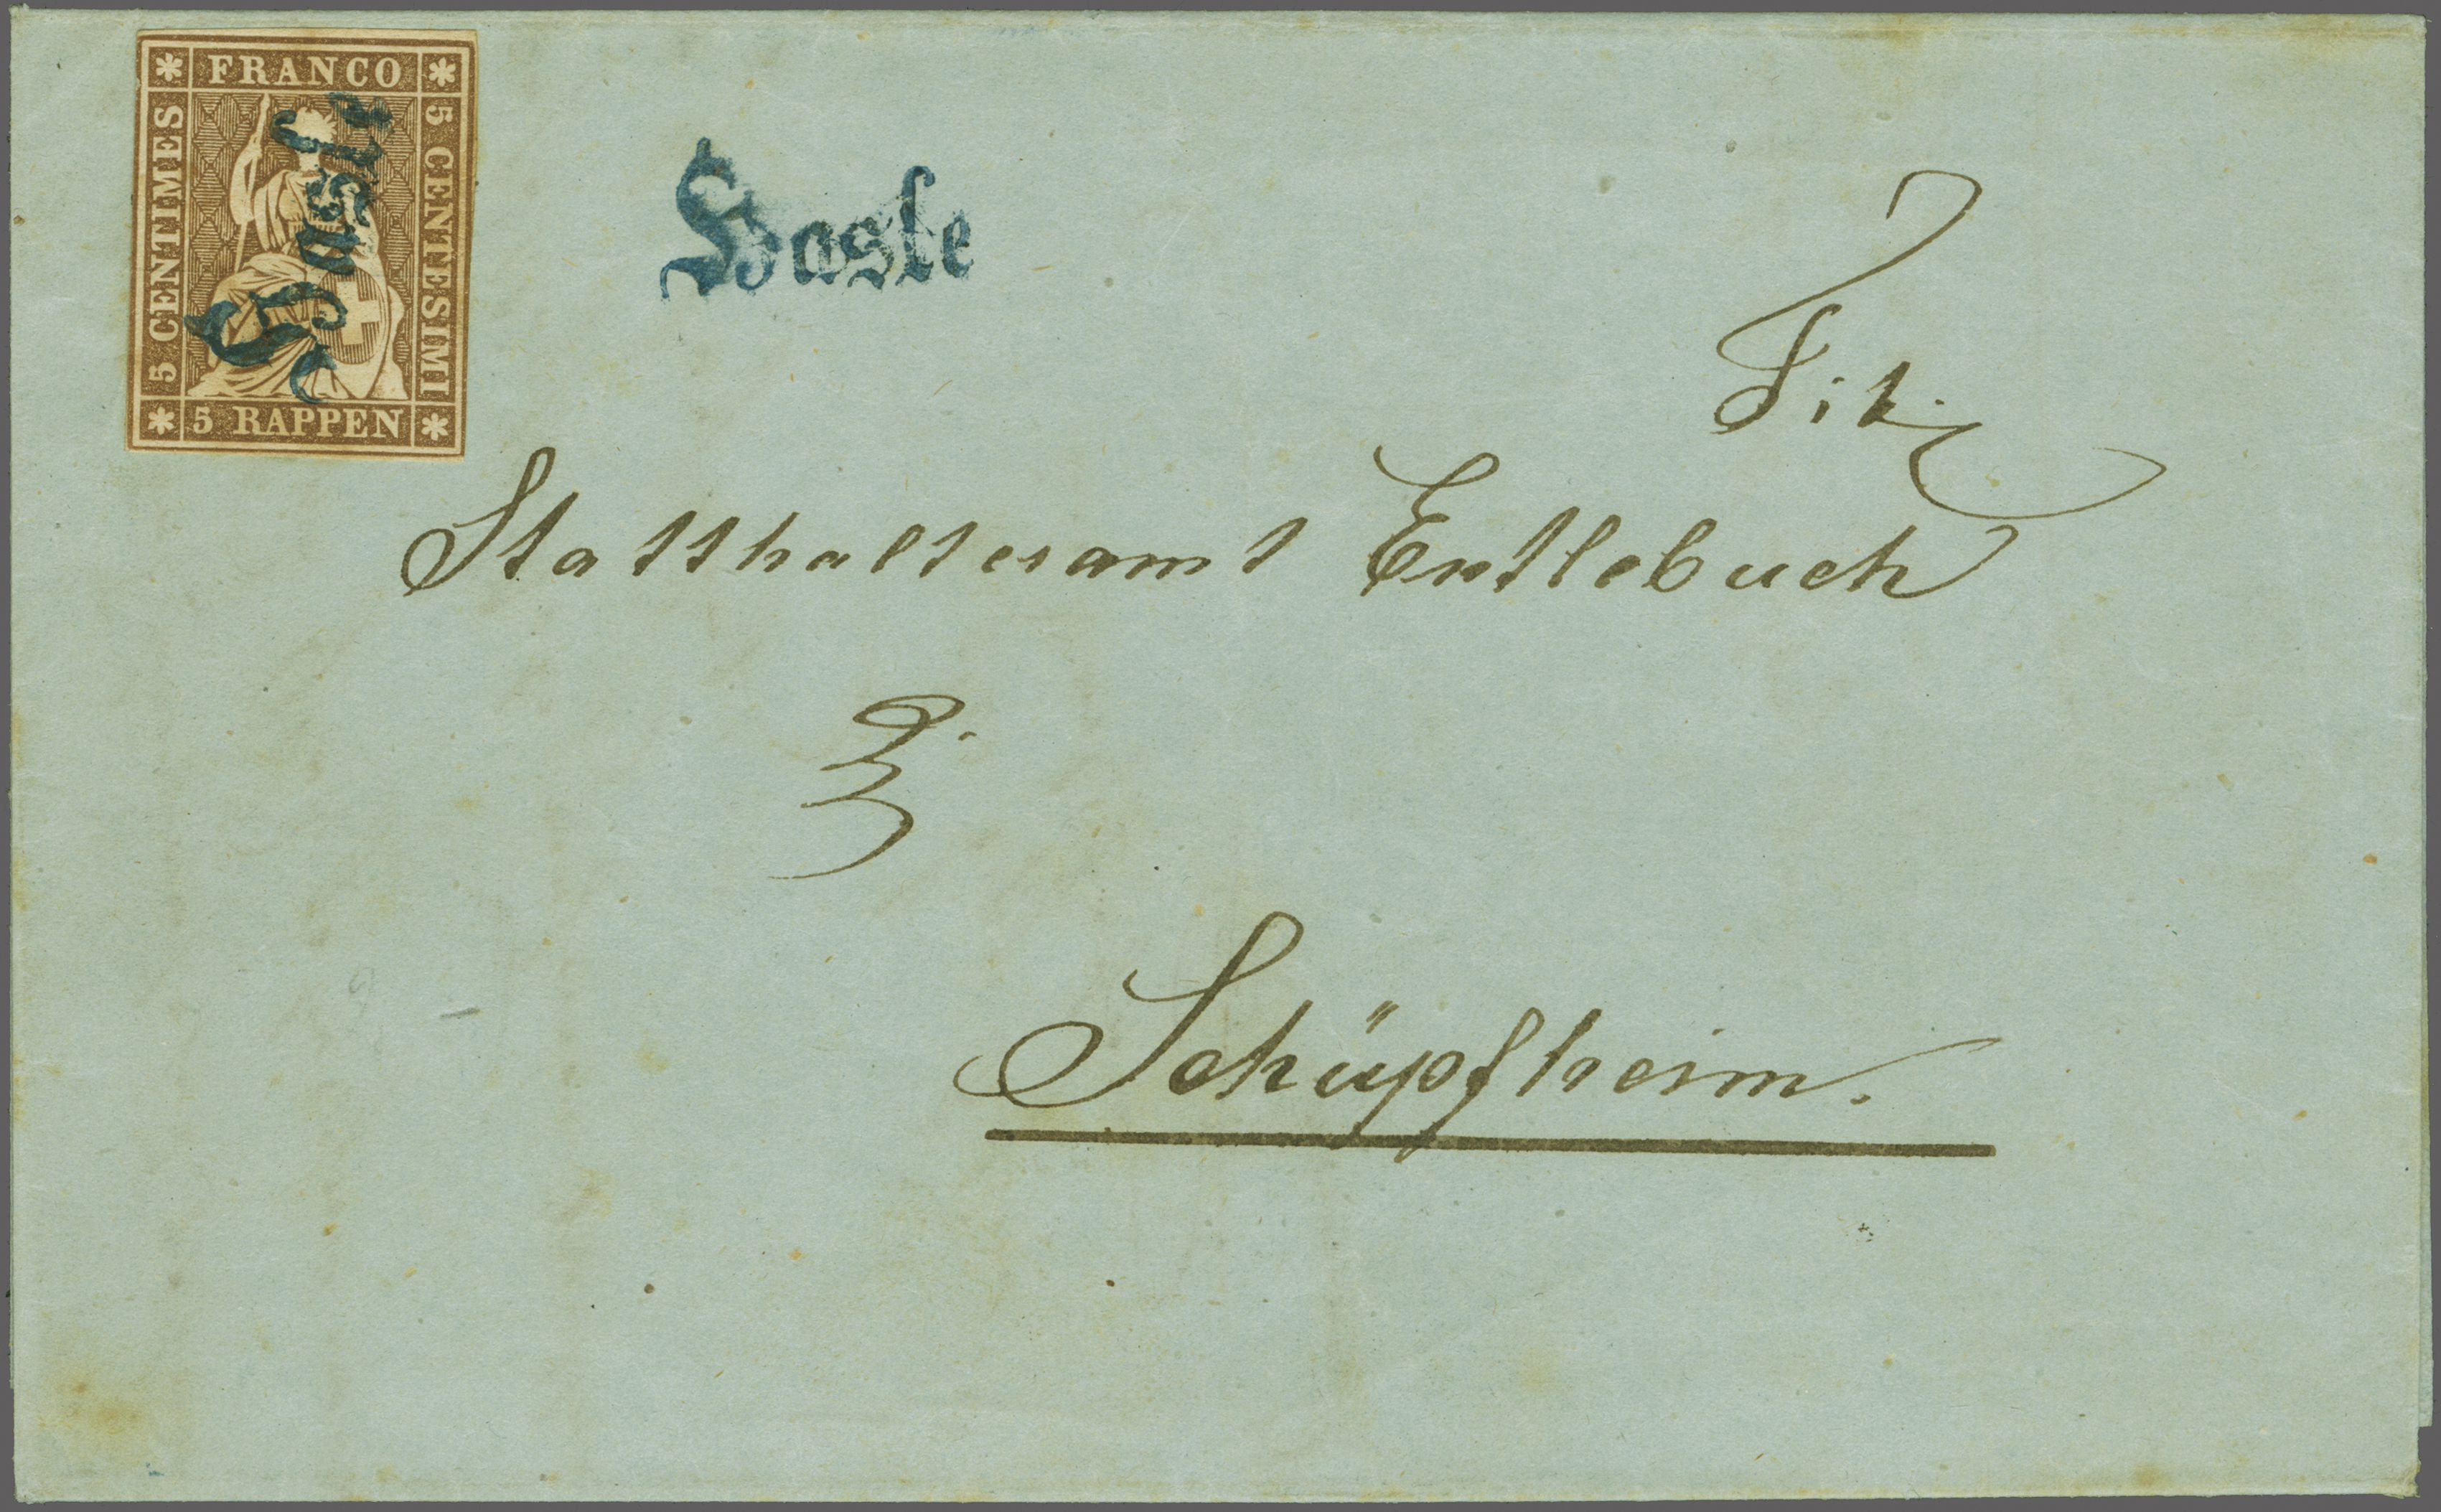 FRANCO
5 CENTIMES
5 CENTESIMI
5 RAPPEN
Hasle
Hasle
Tit.
Statthalteramt Entlebuch
Schüpfheim.